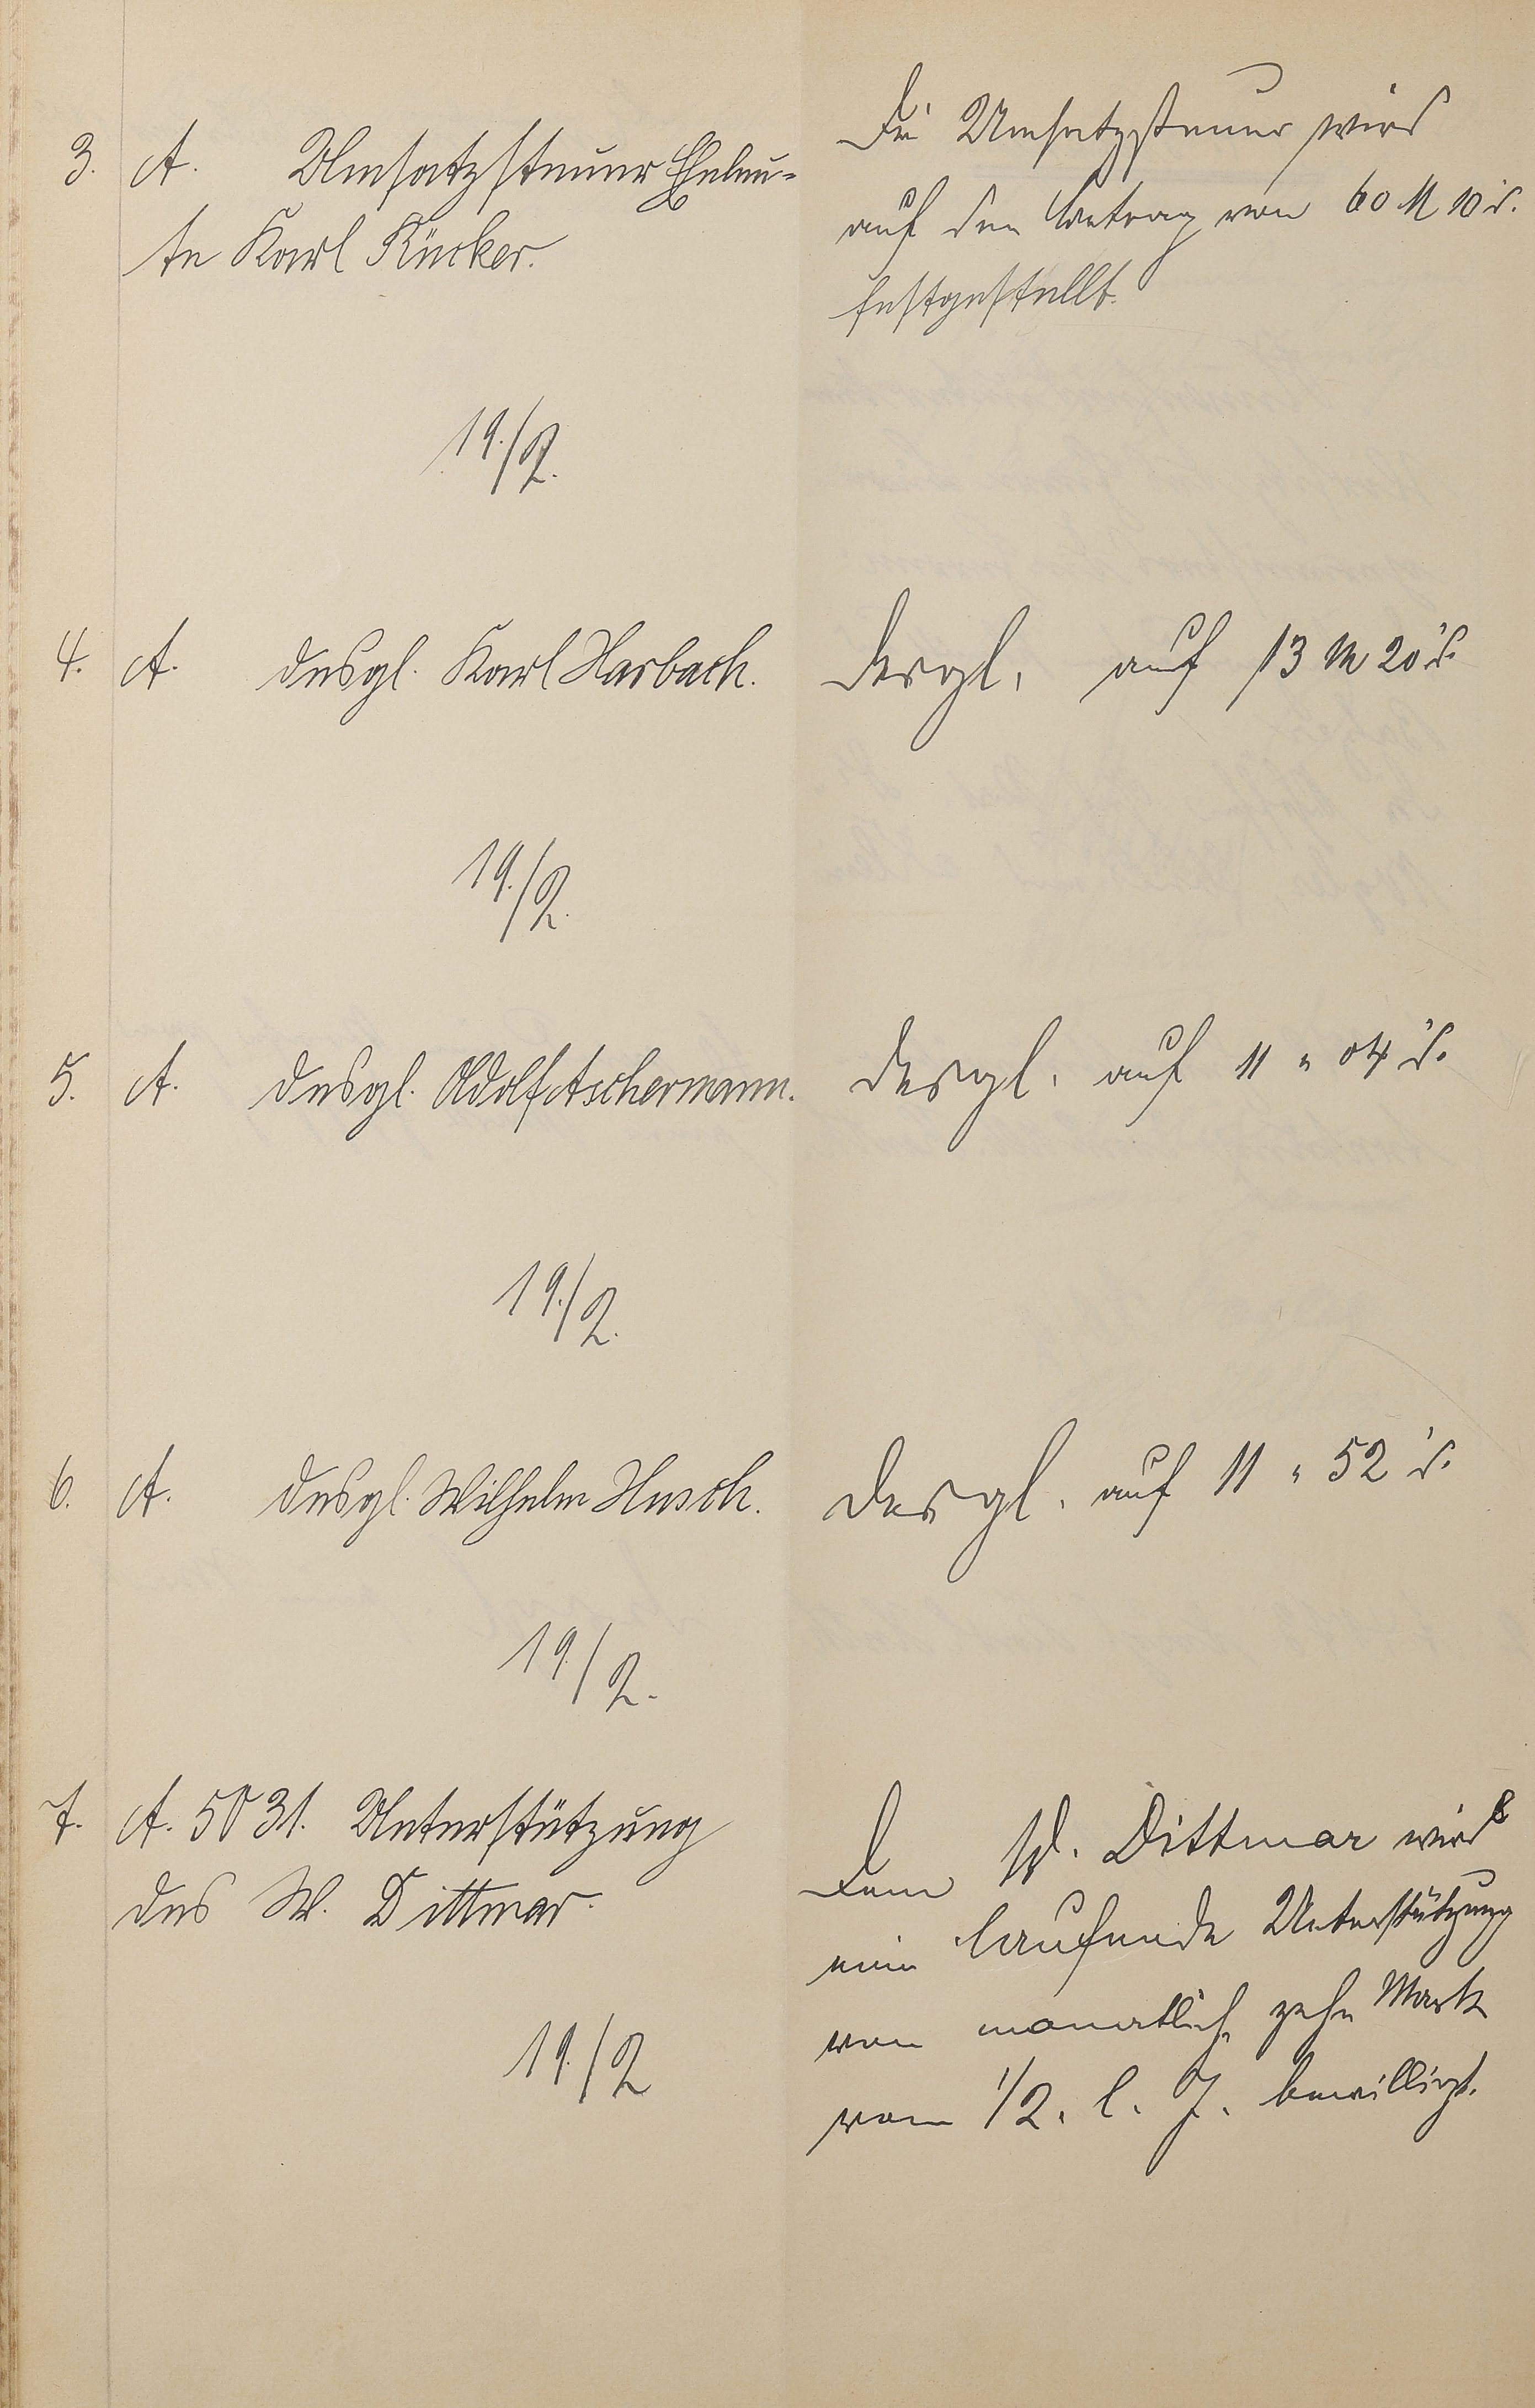 3. A. Umsatzsteuer Eheleu-
te Karl Rücker.
Die Umsatzsteuer wird
auf den Betrag von 60 M 10 d.
festgestellt.
19./2.
4. A. desgl. Karl Harbach.
desgl. auf 13 M 20 d.
19./2.
5. A. desgl. Adolf Aschermann.
desgl. auf 11 " 04 d.
19./2.
6. A. desgl. Wilhelm Husch.
desgl. auf 11 " 52 d.
19/2.
7. A. 5031. Unterstützung
des W. Dittmar.
Dem W. Dittmar wird
eine laufende Unterstützung
von monatlich zehn Mark
vom 1/2. l. J. bewilligt.
19./2